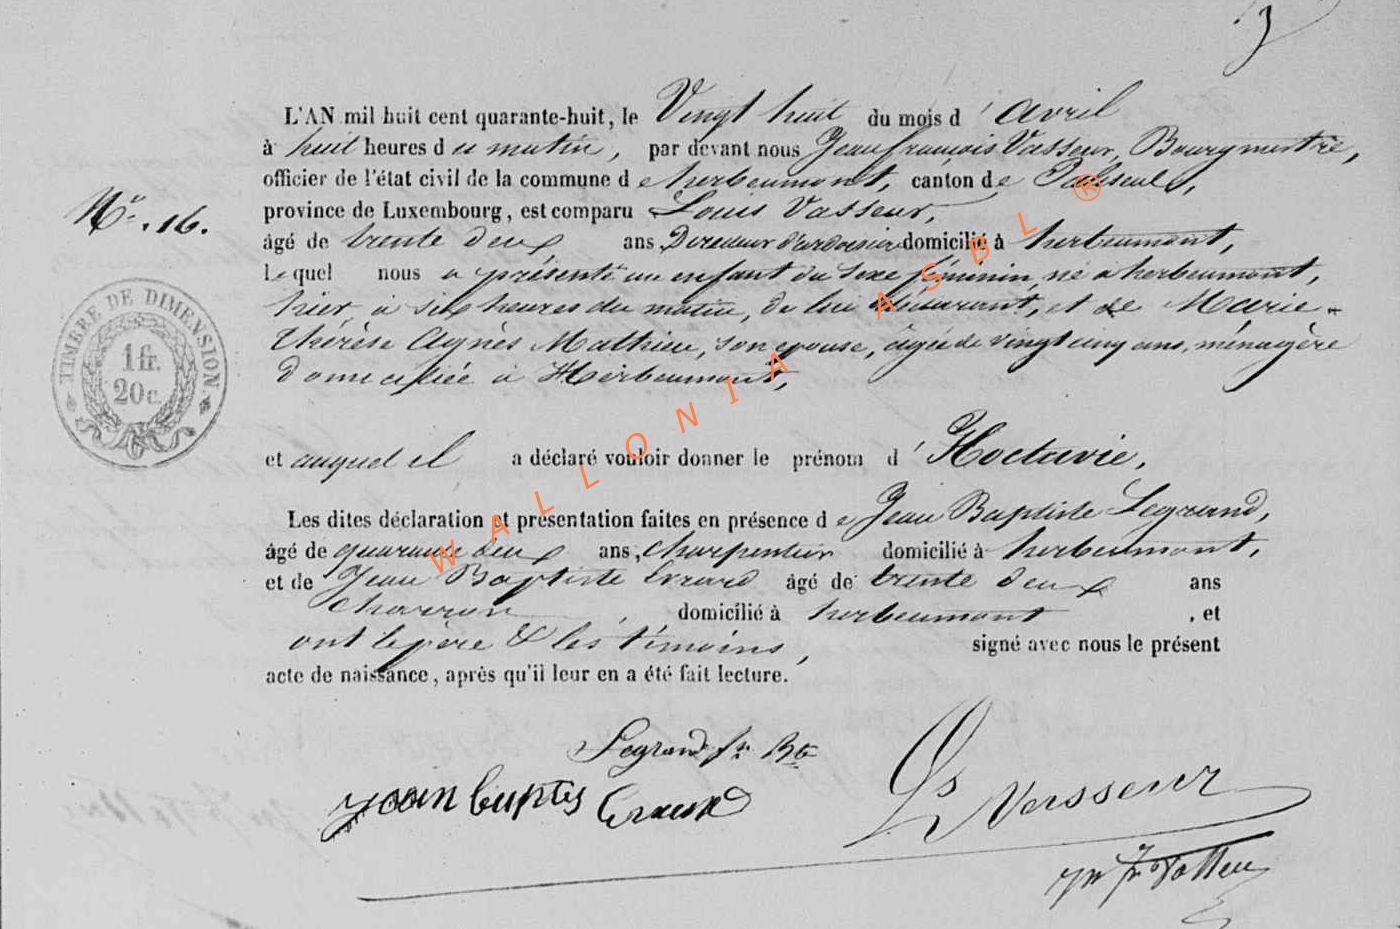 3
L'AN mil huit cent quarante-huit, le Vingt huit du mois d'Avril
à huit heures du matin, par devant nous Jean françois Vasseur, Bourgmestre,
officier de l'état civil de la commune de herbeumont, canton de Paliseul,
N.° 16.
province de Luxembourg, est comparu Louis Vasseur,
âgé de trente deux ans, Directeur d'ardoisier domicilié à herbeumont,
Lequel nous a présenté un enfant du sexe féminin, né à herbeumont,
hier, à six heures du matin, de lui déclarant, et de Marie-
Thérèse Agnès Mathieu, son epouse, âgée de vingt cinq ans, ménagère
Domiciliée à Herbeumont,
TIMBRE DE DIMENSION
1 fr.
20 c.
et auquel il a déclaré vouloir donner le prénom d'Hoctavie,
Les dites déclaration et présentation faites en présence de Jean Baptiste Legrand,
âgé de quarante deux ans, charpentier domicilié à herbeumont,
et de Jean Baptiste Evrard âgé de trente deux ans
charron, domicilié à herbeumont, et
ont le père & les témoins, signé avec nous le présent
acte de naissance, après qu'il leur en a été fait lecture.
Legrand Jn Bte
Ls Vasseur
WALLONIA ASBL ®